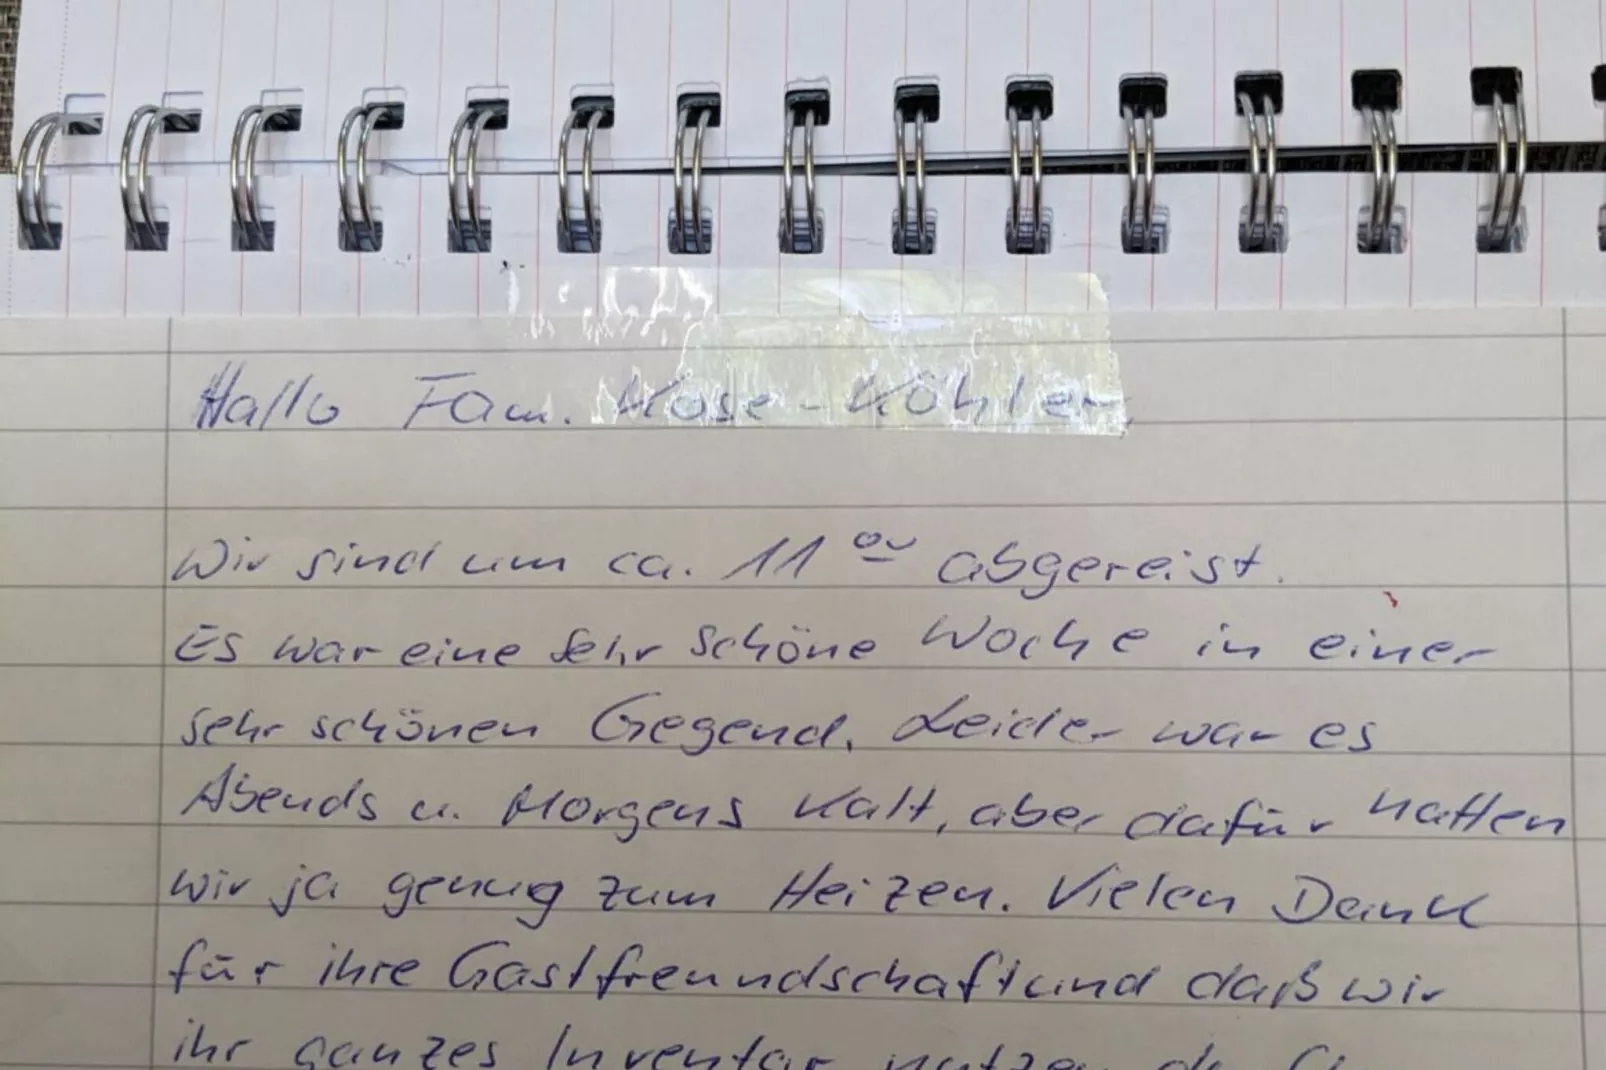 Hallo Fam. Kose-Köhler,
Wir sind um ca. 11⁰⁰ abgereist.
Es war eine sehr schöne Woche in einer
sehr schönen Gegend. Leider war es
Abends u. Morgens kalt, aber dafür hatten
wir ja genug zum Heizen. Vielen Dank
für ihre Gastfreundschaft und daß wir
ihr ganzes Inventar nutzen